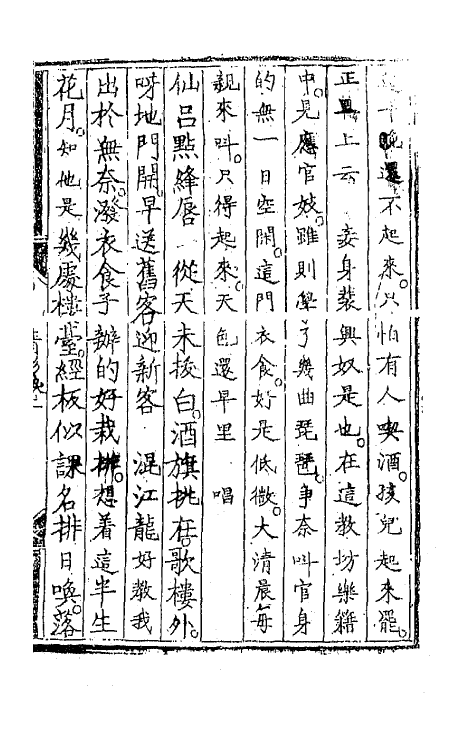 晚還不起來。只怕有人喫酒。孩兒起來罷。
正旦上云　妾身裴興奴是也。在這教坊樂籍
中。見應官妓。雖則學了幾曲琵琶。爭奈叫官身
的無一日空閑。這門衣食。好是低微。大清晨每
親來叫。只得起來。天色還早里　唱
仙呂點絳唇　從天未拔白。酒旗挑在。歌樓外。
呀地門開。早送舊客迎新客　混江龍　好教我
出於無奈。潑衣食子辦的好栽排。想着這半生
花月。知他是幾處樓臺。經板似課名排日喚。落